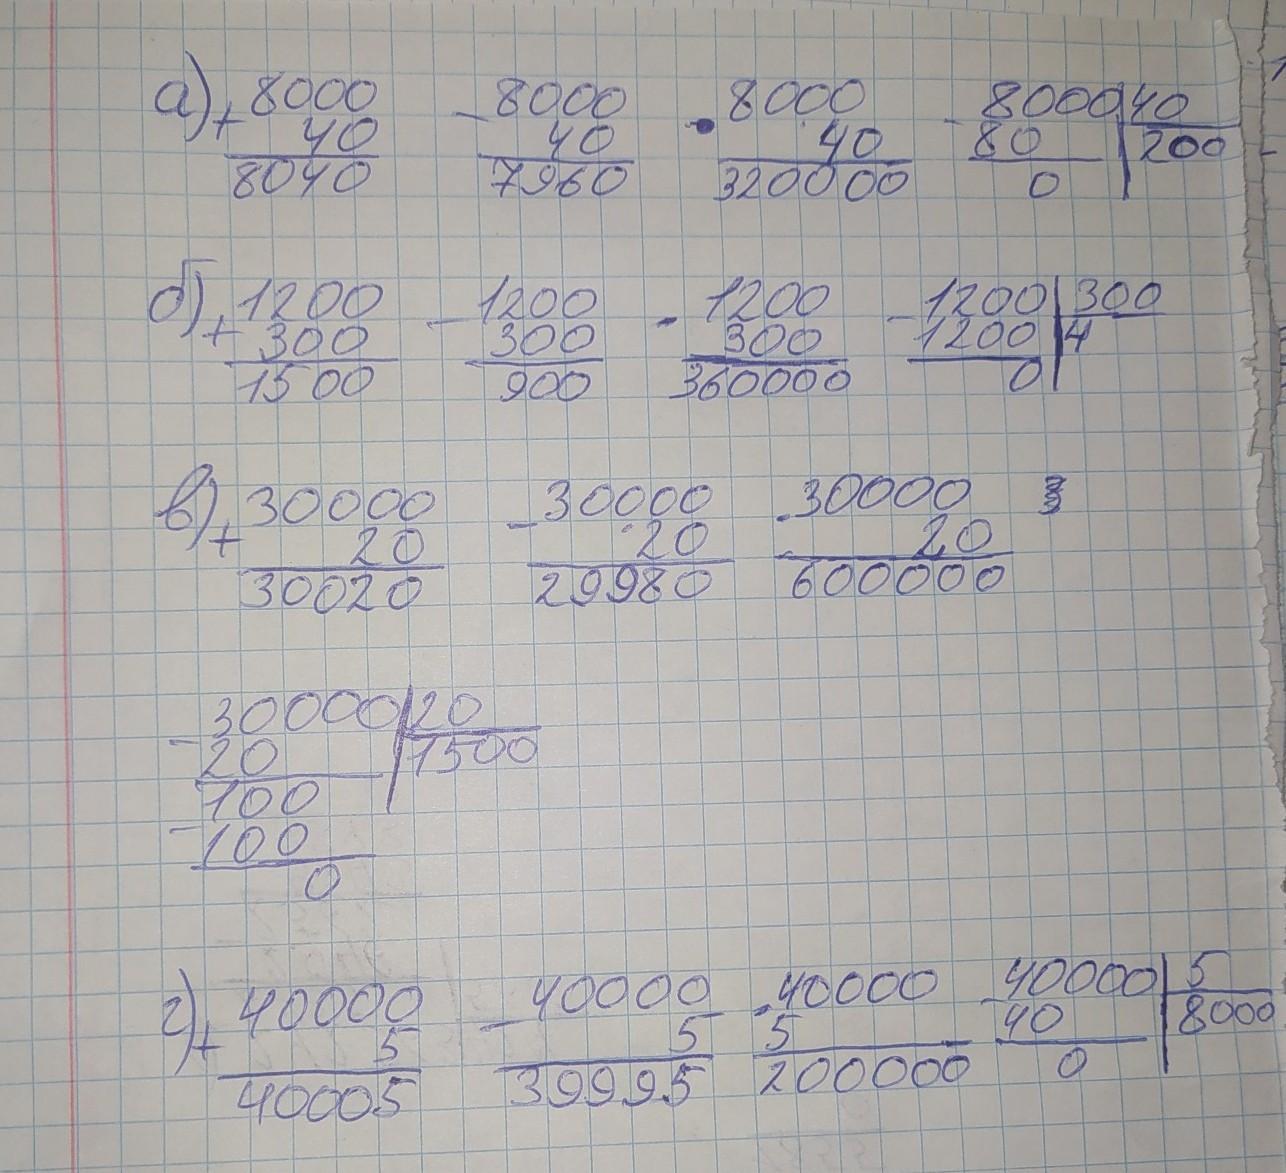 а) + 8000 - 8000 · 8000 - 8000 | 40
40 40 40 80 | 200
8040 7960 320000 0
б) + 1200 - 1200 · 1200 - 1200 | 300
300 300 300 1200 | 4
1500 900 360000 0
в) + 30000 - 30000 · 30000
20 20 20
30020 29980 600000
- 30000 | 20
20 | 1500
- 100
100
0
г) + 40000 - 40000 · 40000 - 40000 | 5
5 5 5 40 | 8000
40005 39995 200000 0